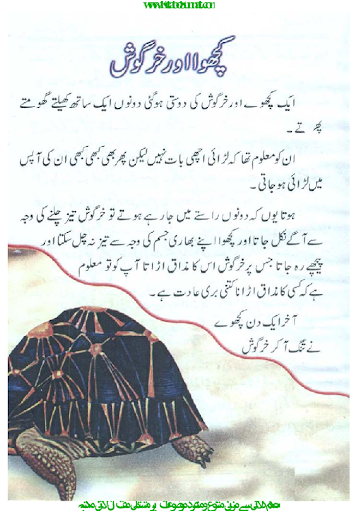 کچھوا اور خرگوش
ایک کچھوے اور خرگوش کی دوستی ہوگئی دونوں ایک ساتھ کھیلتے گھومتے
پھر تے ۔
ان کو معلوم تھا کہ لڑائی اچھی بات نہیں لیکن پھر بھی کبھی کبھی ان کی آپس
میں لڑائی ہو جاتی ۔
ہوتا یوں کہ دونوں راستے میں جا رہے ہوتے تو خرگوش تیز چلنے کی وجہ
سے آگے نکل جاتا اور کچھوا اپنے بھاری جسم کی وجہ سے تیز نہ چل سکتا اور
پیچھے رہ جاتا جس پر خرگوش اس کا مذاق اڑاتا آپ کو تو معلوم
ہے کہ کسی کا مذاق اڑانا کتنی بری عادت ہے ۔
آخر ایک دن کچھوے
نے تنگ آ کر خرگوش